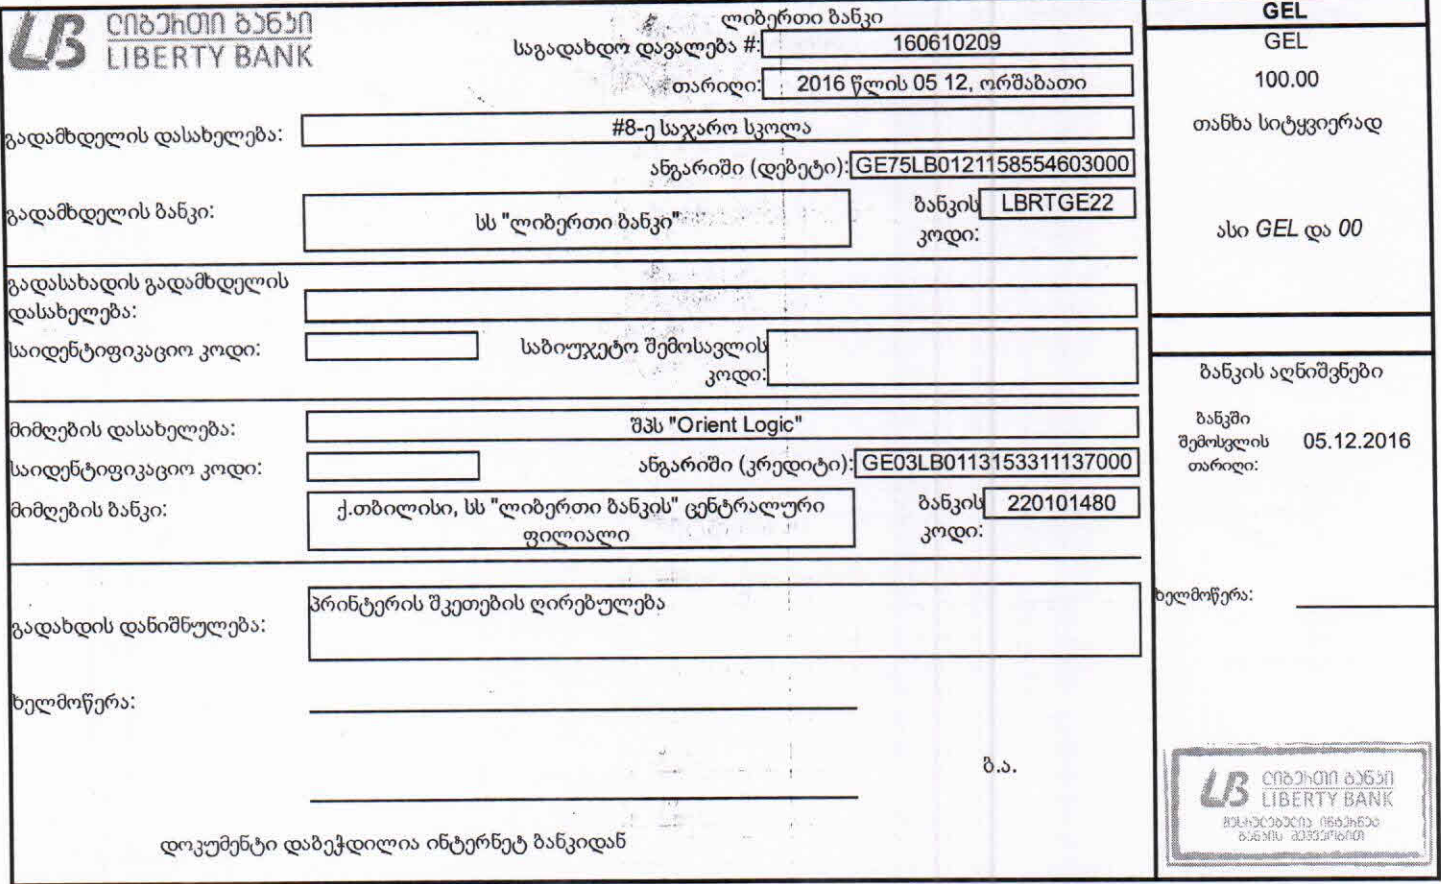 ლიბერთი ბანკი
LIBERTY BANK
ლიბერთი ბანკი
საგადახდო დავალება #: 160610209
თარიღი: 2016 წლის 05 12, ორშაბათი
გადამხდელის დასახელება: #8-ე საჯარო სკოლა
ანგარიში (დებეტი): GE75LB0121158554603000
გადამხდელის ბანკი: სს "ლიბერთი ბანკი" ბანკის LBRTGE22
კოდი:
გადასახადის გადამხდელის
დასახელება:
საიდენტიფიკაციო კოდი: საბიუჯეტო შემოსავლის
კოდი:
მიმღების დასახელება: შპს "Orient Logic"
საიდენტიფიკაციო კოდი: ანგარიში (კრედიტი): GE03LB0113153311137000
მიმღების ბანკი: ქ.თბილისი, სს "ლიბერთი ბანკის" ცენტრალური ბანკის 220101480
ფილიალი კოდი:
პრინტერის შკეთების ღირებულება
გადახდის დანიშნულება:
ხელმოწერა:
ბ.ა.
დოკუმენტი დაბეჭდილია ინტერნეტ ბანკიდან
GEL
GEL
100.00
თანხა სიტყვიერად
ასი GEL და 00
ბანკის აღნიშვნები
ბანკში
შემოსვლის 05.12.2016
თარიღი:
ხელმოწერა:
ლიბერთი ბანკი
LIBERTY BANK
შესრულებულია ინტერნეტ
ბანკის მეშვეობით